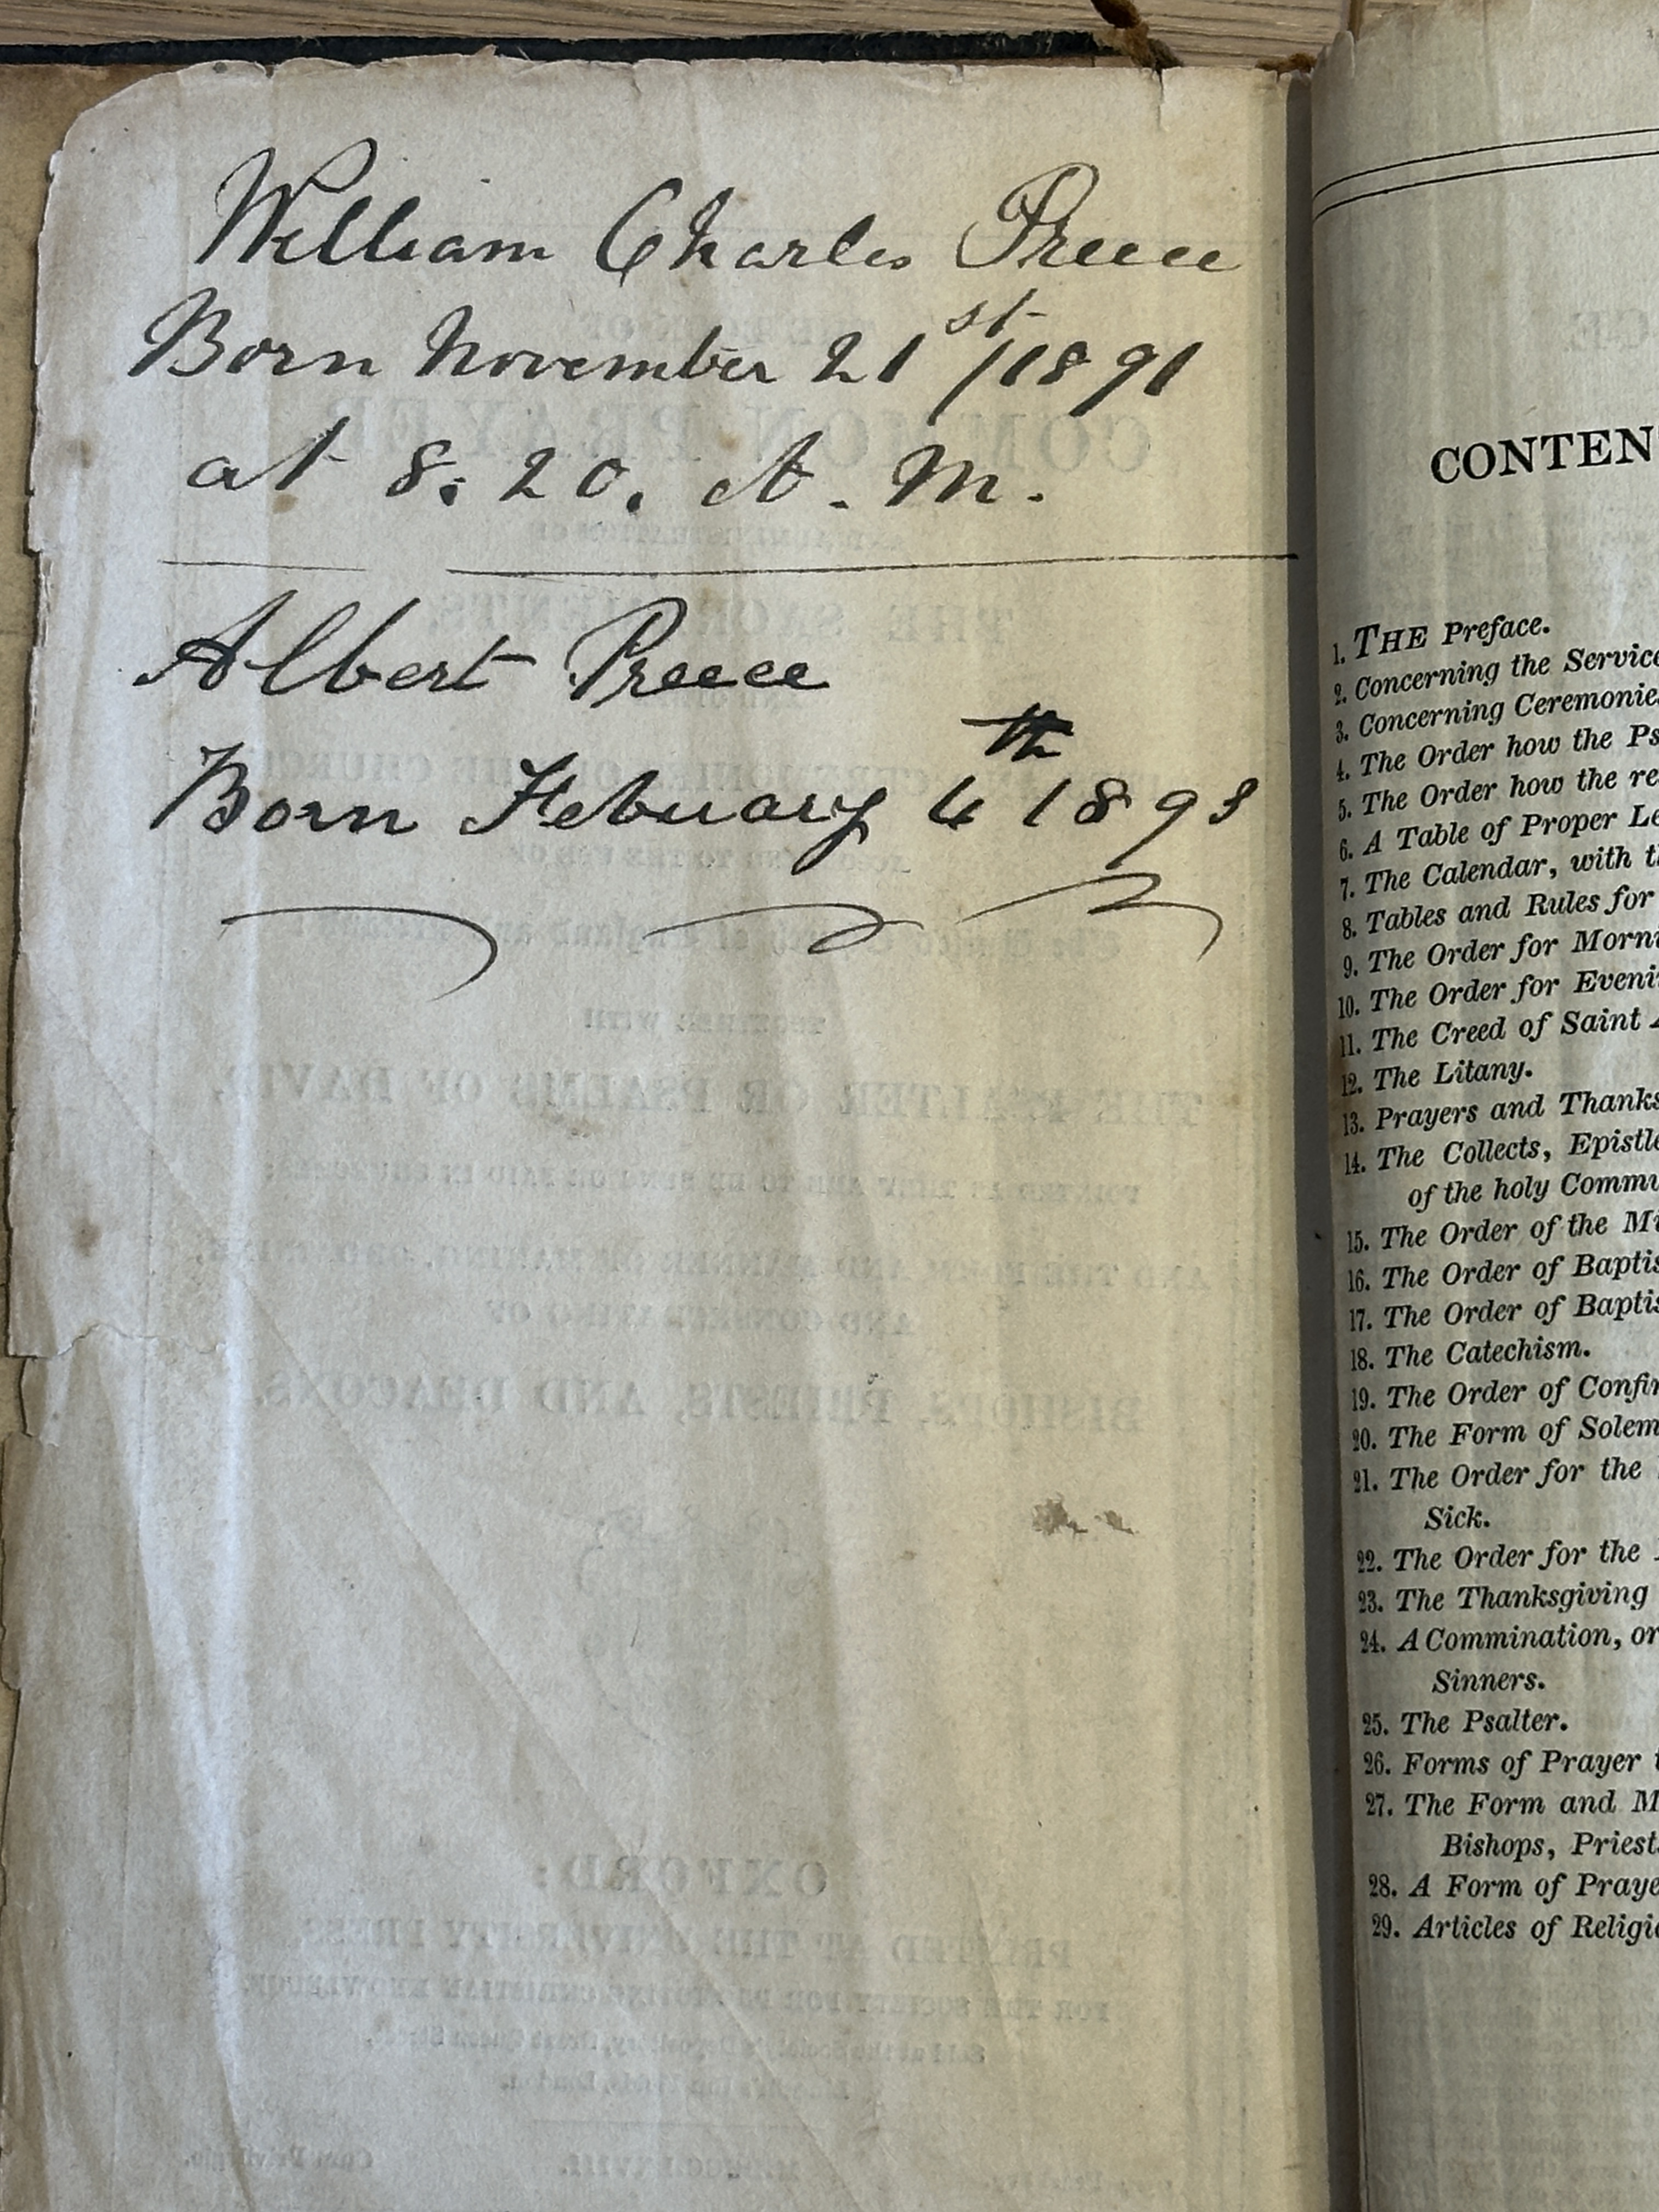 William Charles Preece
Born November 21st/1891
at 8. 20. A. M.
Albert Preece
Born Febuary 4th 1893
CONTEN
1. THE Preface.
2. Concerning the Service
3. Concerning Ceremonies
4. The Order how the Ps
5. The Order how the re
6. A Table of Proper Le
7. The Calendar, with t
8. Tables and Rules for
9. The Order for Morni
10. The Order for Eveni
11. The Creed of Saint
12. The Litany.
13. Prayers and Thanks
14. The Collects, Epistle
of the holy Commu
15. The Order of the Mi
16. The Order of Baptis
17. The Order of Baptis
18. The Catechism.
19. The Order of Confir
20. The Form of Solem
21. The Order for the
Sick.
22. The Order for the
23. The Thanksgiving
24. A Commination, or
Sinners.
25. The Psalter.
26. Forms of Prayer t
27. The Form and M
Bishops, Priest
28. A Form of Praye
29. Articles of Religi